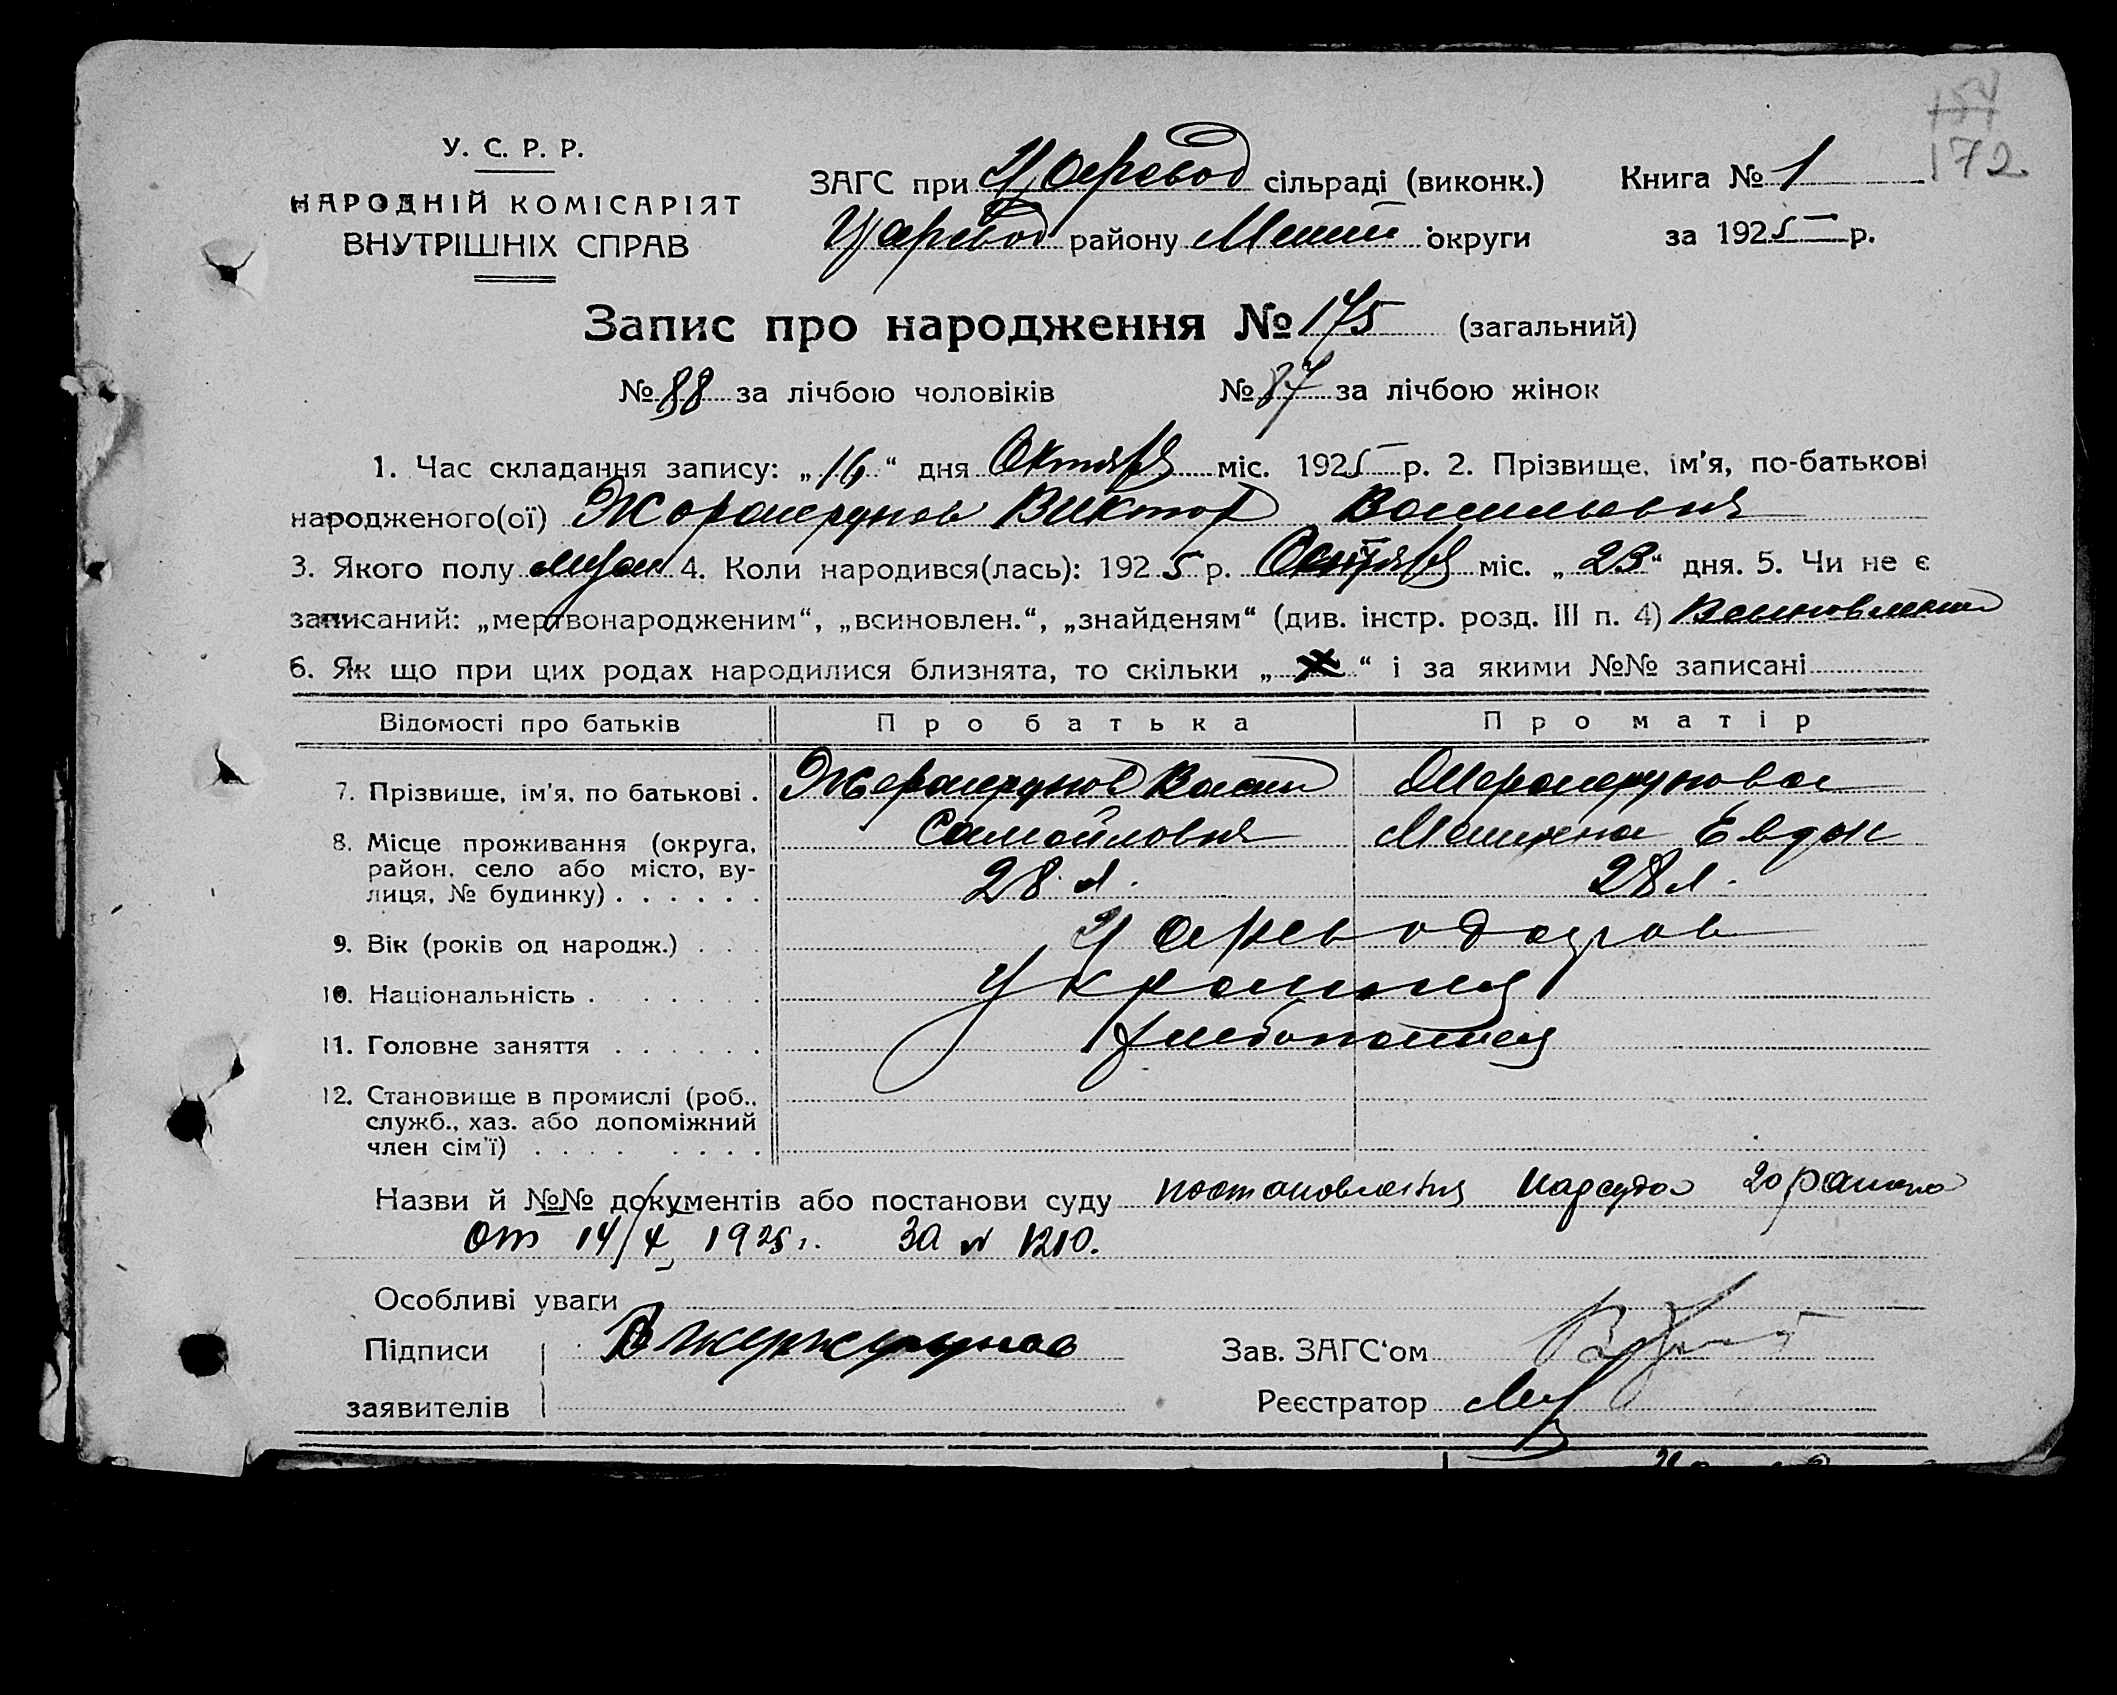 172
У. С. Р. Р.
НАРОДНІЙ КОМІСАРІЯТ
ВНУТРІШНІХ СПРАВ
ЗАГС при Царевод сільраді (виконк.) Книга № 1
Царевод району округи за 1925 р.
Запис про народження № 175 (загальний)
№ 88 за лічбою чоловіків № 87 за лічбою жінок
1. Час складання запису: „16“ дня Октября міс. 1925 р. 2. Прізвище, ім'я, по-батькові
народженого(ої) Виктор
3. Якого полу 4. Коли народився(лась): 1925 р. Октября міс. „23“ дня. 5. Чи не є
записаний: „мертвонародженим“, „всиновлен.“, „знайденям“ (див. інстр. розд. III п. 4)
6. Як що при цих родах народилися близнята, то скільки „ “ і за якими №№ записані
Відомості про батьків Про батька Про матір
7. Прізвище, ім'я, по батькові .
8. Місце проживання (округа, Самойлович Евдок
район, село або місто, ву-
лиця, № будинку) . . . . . . 28 л. 28 л.
9. Вік (років од народж.) . . .
10. Національність . . . . . .
11. Головне заняття . . . . . .
12. Становище в промислі (роб.,
служб., хаз. або допоміжний
член сім'ї) . . . . . . . .
Назви й №№ документів або постанови суду постановления Нарсуда 20 района
от 14/X 1925 г. за № 1210.
Особливі уваги
Підписи Зав. ЗАГС'ом
заявителів Реєстратор